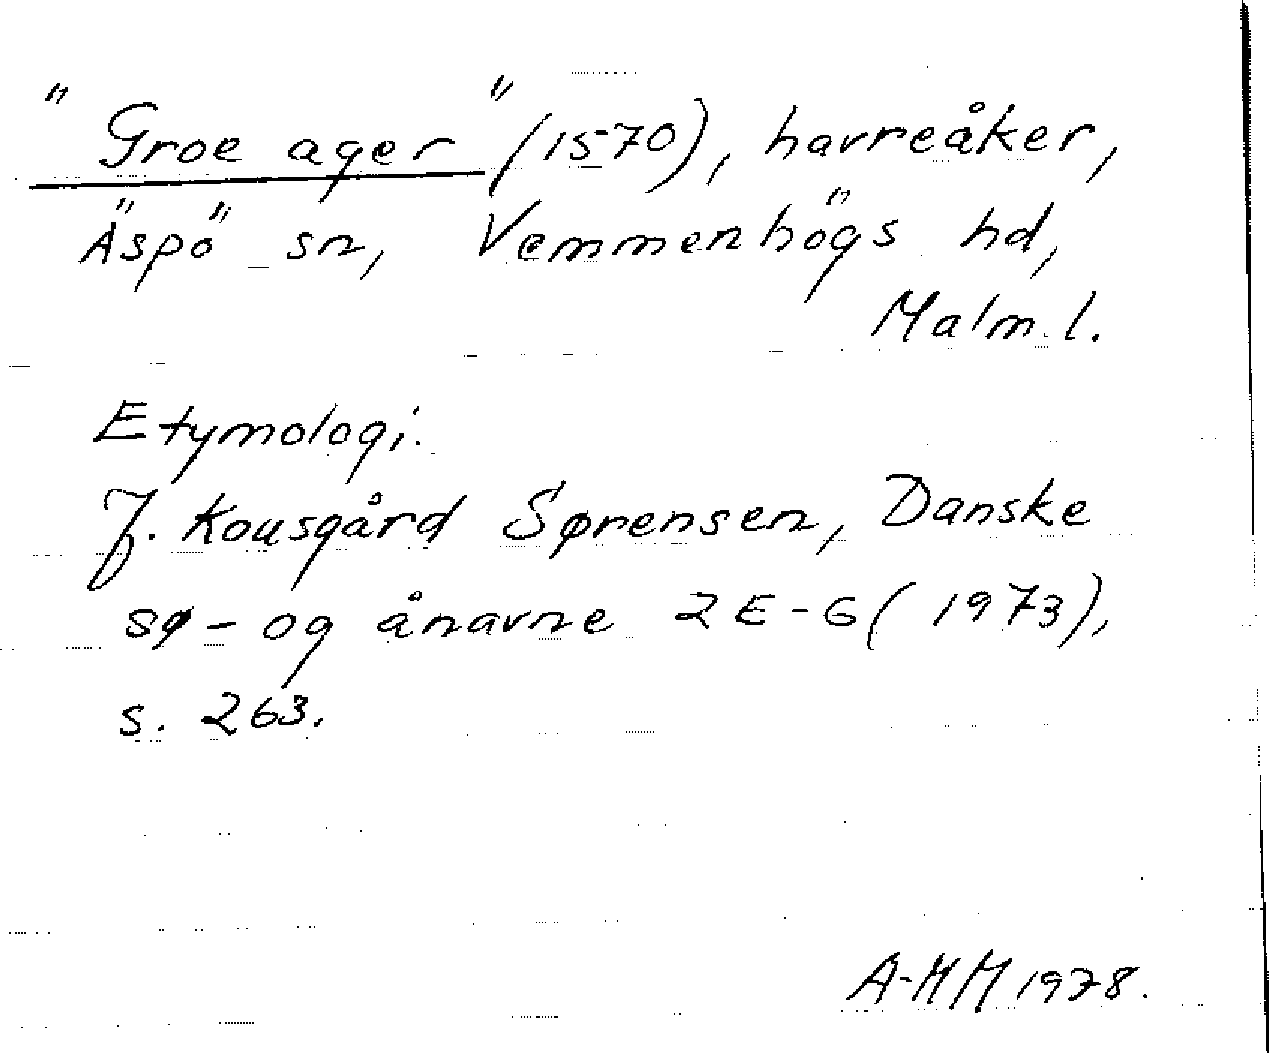 "Groe ager" (1570), havreåker,
Äspö sn, Vemmenhögs hd,
Malm. l.
Etymologi.
J. Kousgård Sørensen, Danske
sø- og ånavne 2 E-G (1973),
s. 263.
A-MM 1978.